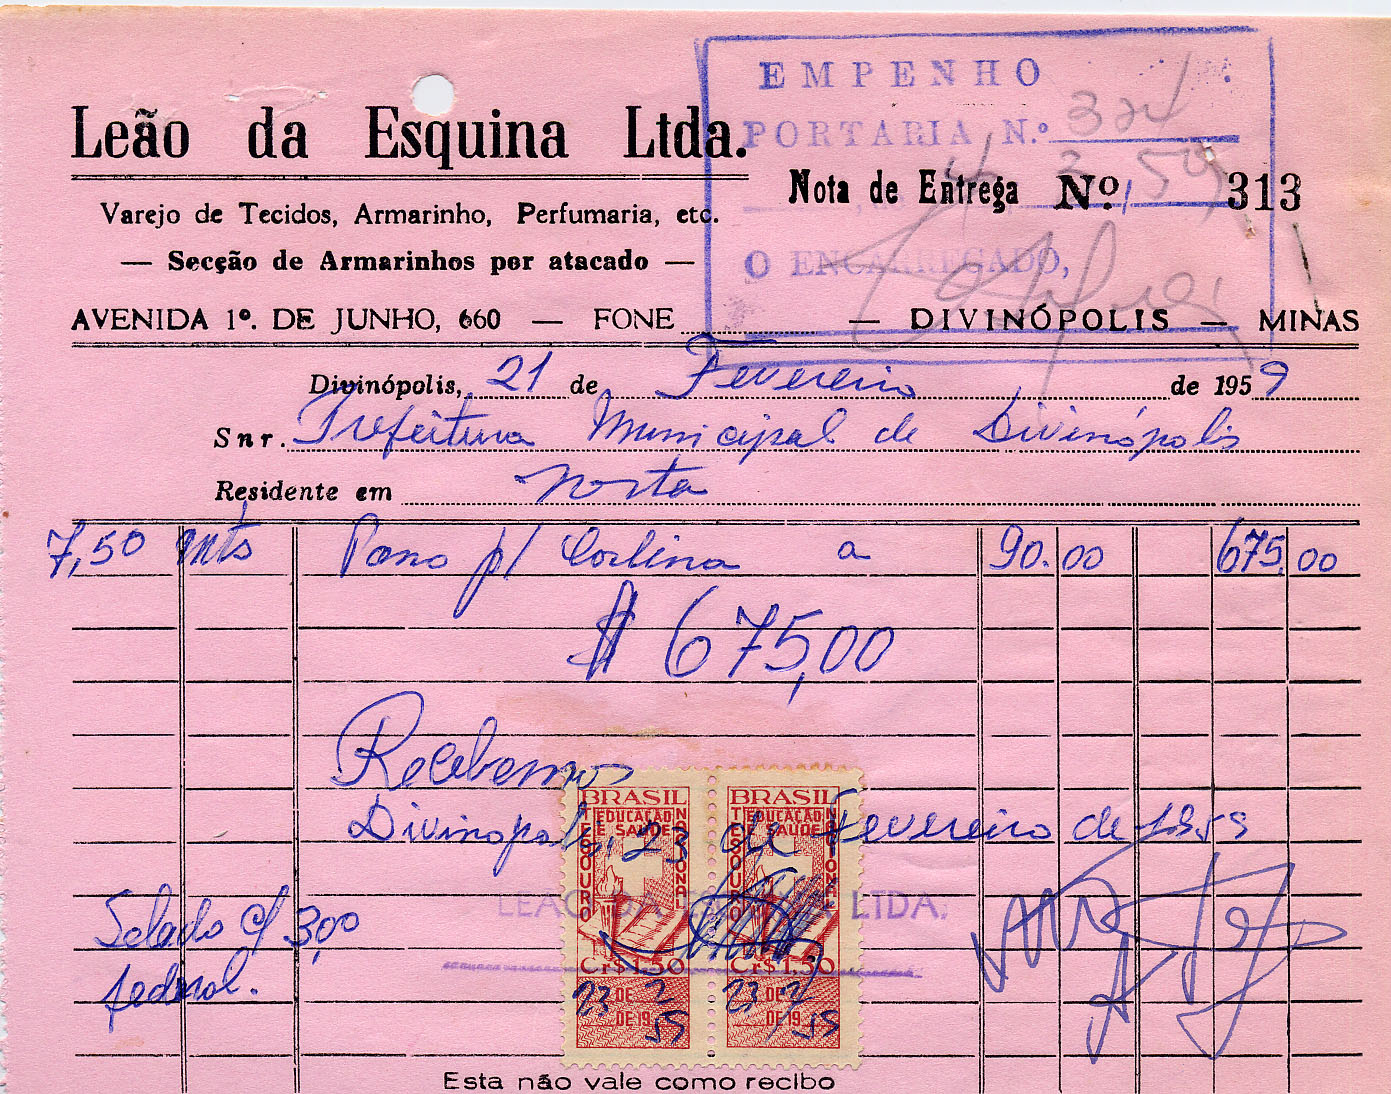 EMPENHO
PORTARIA N.º 324
4 2 59
O ENCARREGADO,
Leão da Esquina Ltda.
Nota de Entrega Nº 313
Varejo de Tecidos, Armarinho, Perfumaria, etc.
— Secção de Armarinhos por atacado —
AVENIDA 1º. DE JUNHO, 660 — FONE — DIVINÓPOLIS — MINAS
Divinópolis, 21 de Fevereiro de 1959
Snr. Prefeitura Municipal de Divinópolis
Residente em Nesta
7,50 mts Pano p/ Cortina a 90.00 675,00
$ 675,00
Recebemos
Divinopolis, 23 de Fevereiro de 1959
LEAO DA ESQUINA LTDA.
Selado c/ 3,00
federal.
BRASIL
EDUCAÇÃO
E SAUDE
TESOURO NACIONAL
Cr$1,50
23 DE 2
DE 19 59
BRASIL
EDUCAÇÃO
E SAUDE
TESOURO NACIONAL
Cr$1,50
23 DE 2
DE 19 59
Esta não vale como recibo